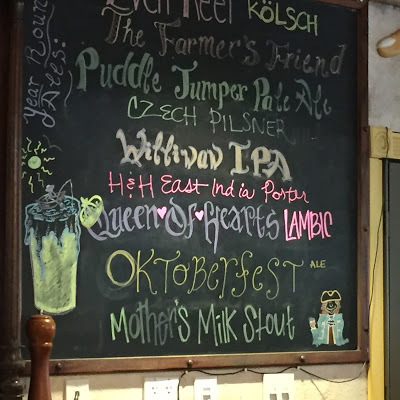 Even Keel KÖLSCH
The Farmer's Friend
Year Round Ales:
Puddle Jumper Pale Ale
CZECH PILSNER
IPA
H&H East India Porter
Queen Of Hearts LAMBIC
OKToberfest ALE
Mother's Milk Stout